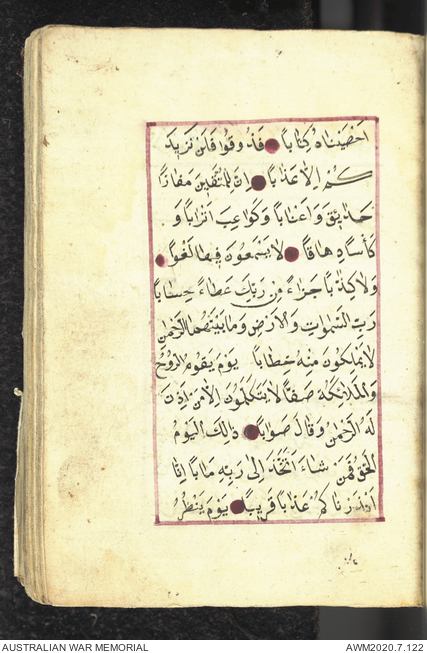 اَحْصَيْنَاهُ كِتَابًا فَذُوقُوا فَلَنْ نَزِيدَ
كُمْ اِلَّا عَذَابًا اِنَّ لِلْمُتَّقِينَ مَفَازًا
حَدَائِقَ وَاَعْنَابًا وَكَوَاعِبَ اَتْرَابًا وَ
كَأْسًا دِهَاقًا لَا يَسْمَعُونَ فِيهَا لَغْوًا
وَلَا كِذَّابًا جَزَاءً مِنْ رَبِّكَ عَطَاءً حِسَابًا
رَبِّ السَّمٰوَاتِ وَالْاَرْضِ وَمَا بَيْنَهُمَا الرَّحْمٰنِ
لَا يَمْلِكُونَ مِنْهُ خِطَابًا يَوْمَ يَقُومُ الرُّوحُ
وَالْمَلَائِكَةُ صَفًّا لَا يَتَكَلَّمُونَ اِلَّا مَنْ اَذِنَ
لَهُ الرَّحْمٰنُ وَقَالَ صَوَابًا ذَالِكَ الْيَوْمُ
الْحَقُّ فَمَنْ شَاءَ اتَّخَذَ اِلٰى رَبِّهِ مَاٰبًا اِنَّا
اَنْذَرْنَاكُمْ عَذَابًا قَرِيبًا يَوْمَ يَنْظُرُ
AUSTRALIAN WAR MEMORIAL AWM2020.7.122